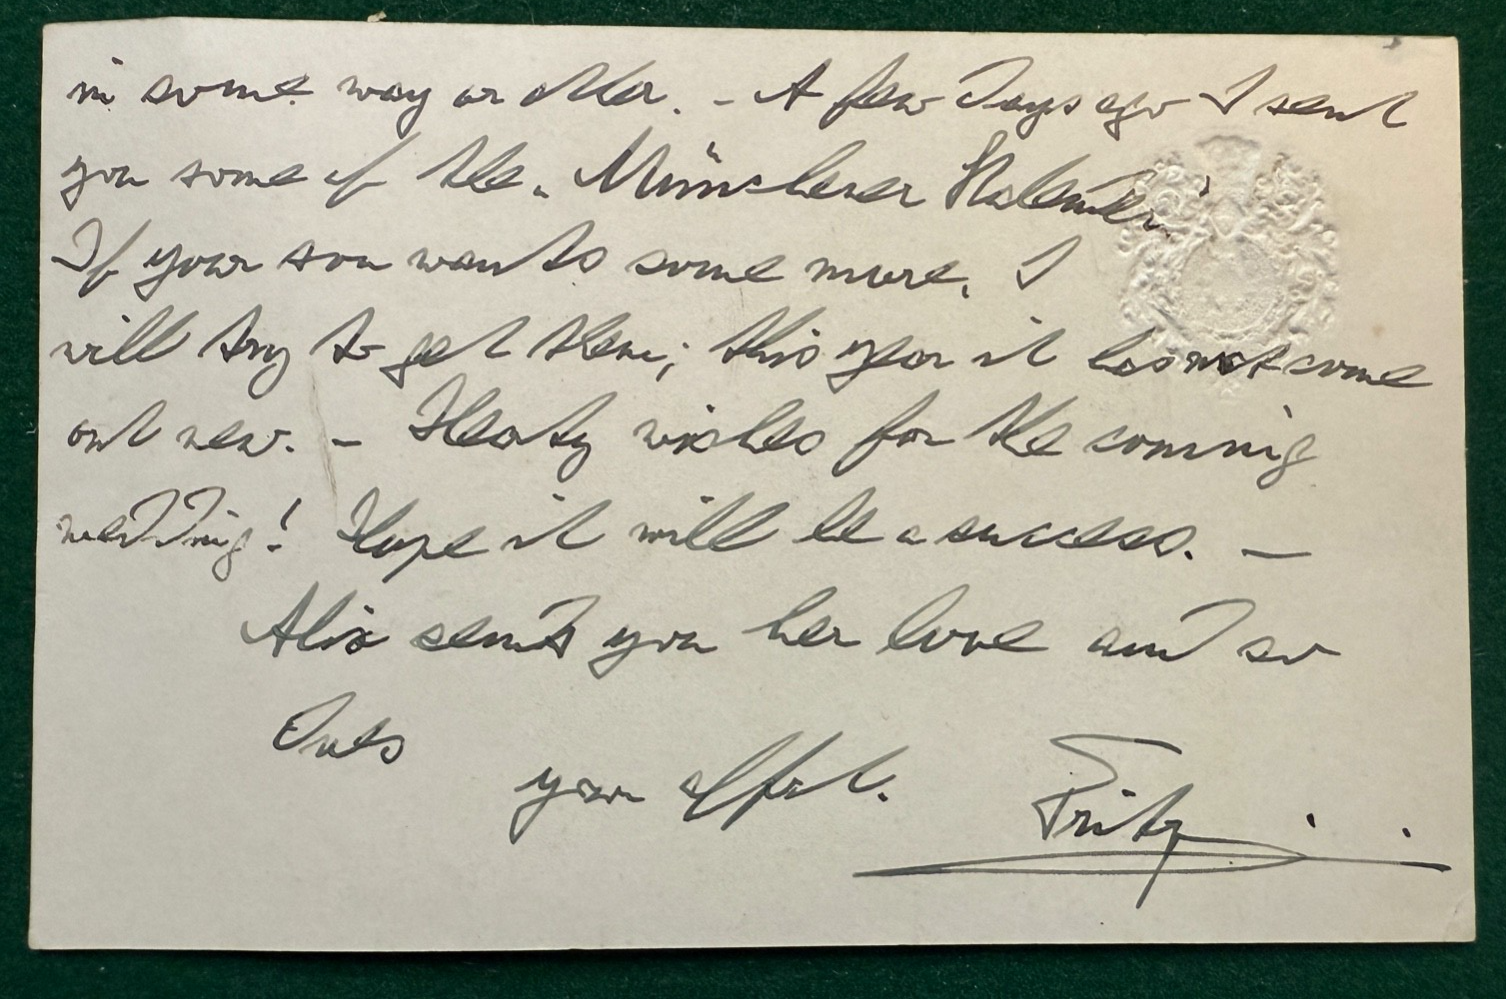 in some way or other. – A few days ago I sent
you some of the „Münchener Kalender“
If your son wants some more, I
will try to get them; this year it has not come
out new. – Hearty wishes for the coming
wedding! Hope it will be a success. –
Alix sends you her love and so
does
your affct. Fritz